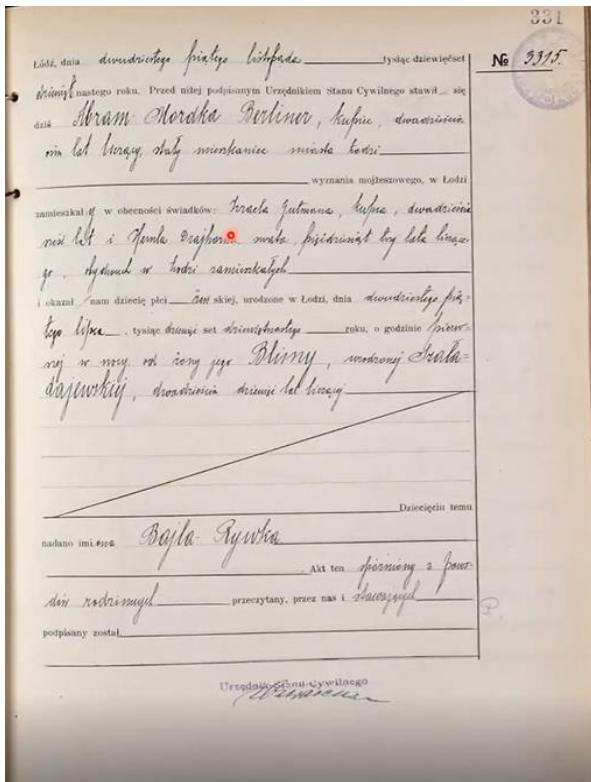 331
Łódź, dnia dwudziestego piątego listopada tysiąc dziewięćset
№ 3315.
dziewiętnastego roku. Przed niżej podpisanym Urzędnikiem Stanu Cywilnego stawił się
dziś Abram Mordka Berliner, kupiec, dwadzieścia
ośm lat liczący, stały mieszkaniec miasta Łodzi
wyznania mojżeszowego, w Łodzi
zamieszkały w obecności świadków: Izraela Gutmana, kupca, dwadzieścia
sześć lat i Hemla swata, pięćdziesiąt trzy lata liczące-
go, obydwóch w Łodzi zamieszkałych
i okazał nam dziecię płci żeńskiej, urodzone w Łodzi, dnia dwudziestego pią-
tego lipca, tysiąc dziewięć set dziewiętnastego roku, o godzinie pierw-
szej w nocy, od żony jego Blimy, urodzonej Szała-
dajewskiej, dwadzieścia dziewięć lat liczącej
Dziecięciu temu
nadano imiona Bajla-Rywka
Akt ten spóźniony z powo-
dów rodzinnych przeczytany, przez nas i stawających
podpisany został
Urzędnik Stanu Cywilnego